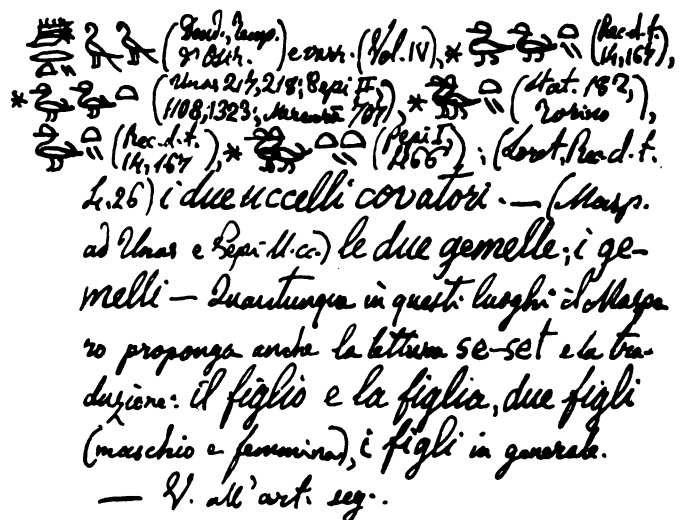 (Lond., Temp. d'Osir.) e varr. (Vol. IV), * (Rec. d. t. 14,167),
* (Unas 217,218; Pepi II, 1108,1323; 707), * (Stat. 182, Torino),
(Rec. d. t. 14,167), * (Pepi I, 466); (Loret, Rec. d. t.
4,26) i due uccelli covatori. — (Masp.
ad Unas e Pepi ll. cc.) le due gemelle; i ge-
melli — Quantunque in questi luoghi il Maspe
ro proponga anche la lettura se-set e la tra-
duzione: il figlio e la figlia, due figli
(maschio e femmina), i figli in generale.
— V. all'art. seg..